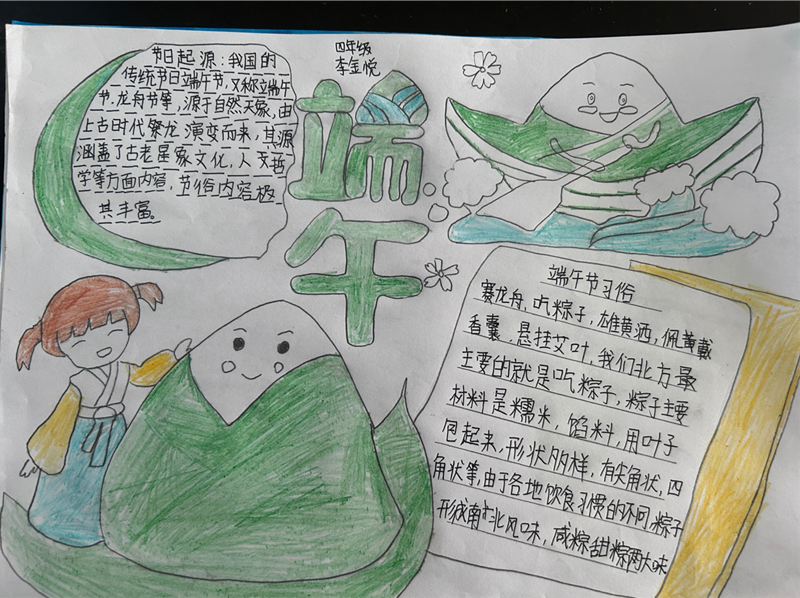 节日起源：我国的
传统节日端午节，又称端午
节、龙舟节等，源于自然天象，由
上古时代祭龙演变而来，其源
涵盖了古老星象文化，人文哲
学等方面内容，节俗内容极
其丰富。
四年级
李金悦
端
午
端午节习俗
赛龙舟，吃粽子，雄黄酒，佩戴
香囊，悬挂艾叶，我们北方最
主要的就是吃粽子，粽子主要
材料是糯米，馅料，用叶子
包起来，形状多样，有尖角状，四
角状等，由于各地饮食习惯的不同，粽子
形成南北风味，咸粽甜粽两大味